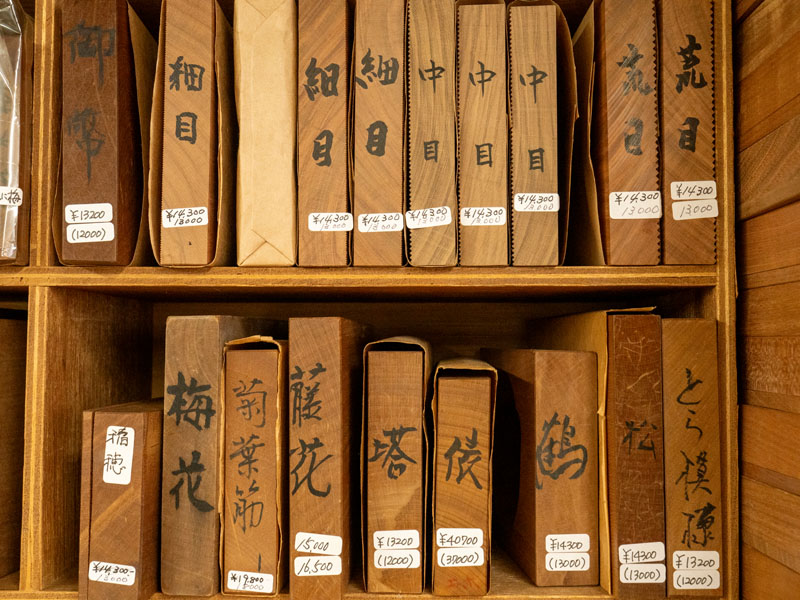 小梅
御幣
¥13200
(12000)
細目
¥14,300
13000
細目
¥14,300
13000
細目
¥14,300
13000
中目
¥14,300
13000
中目
¥14,300
13000
中目
¥14,300
13000
荒目
¥14,300
13000
荒目
¥14,300
13000
稲穂
¥14,300-
13000
梅花
菊葉筋
¥19,800
藤花
15,000
16,500
塔
¥13200
(12000)
俵
¥40700
(37000)
鶴
¥14300
(13000)
松
¥14300
(13000)
とら模様
¥13200
(12000)